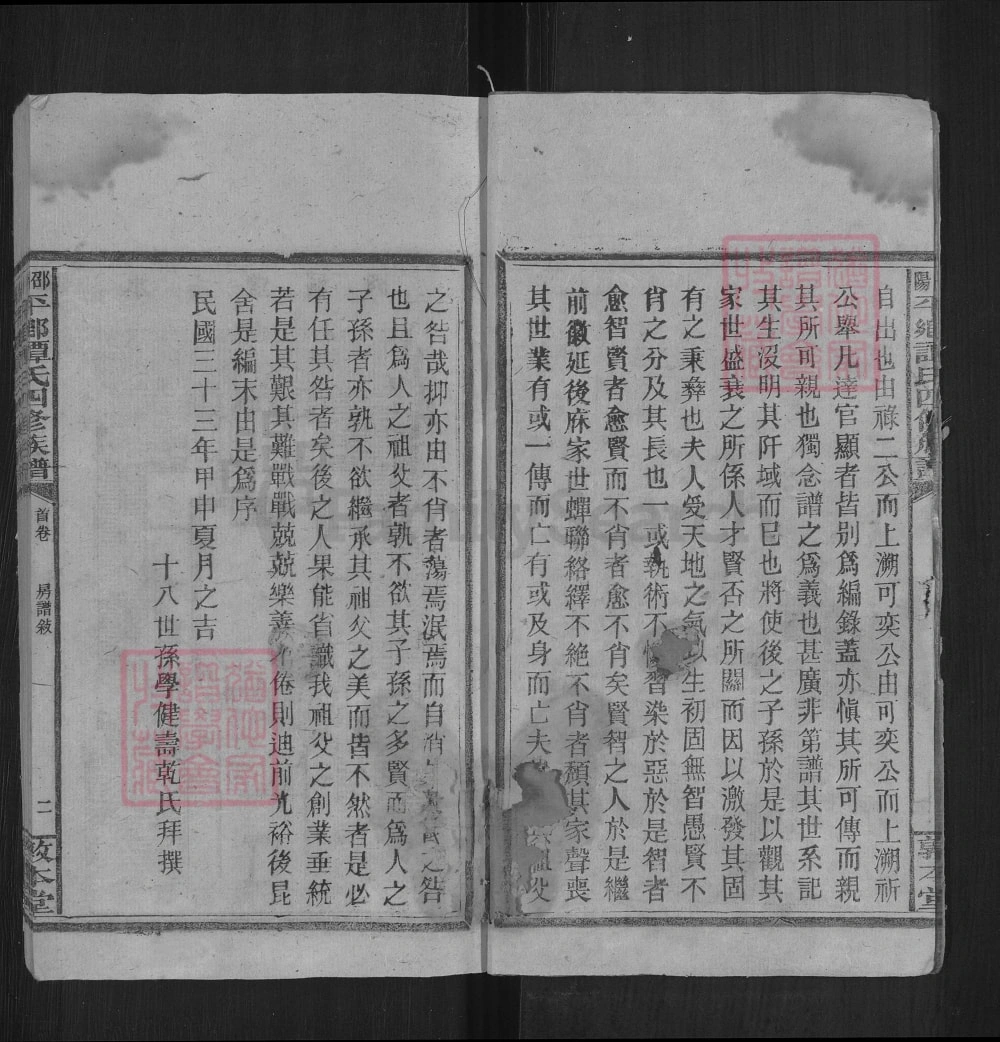 自出也由祿二公而上溯可奕公由可奕公而上溯祈
公舉凡達官顯者皆別爲編錄蓋亦愼其所可傳而親
其所可親也獨念譜之爲義也甚廣非第譜其世系記
其生沒明其阡域而巳也將使後之子孫於是以觀其
家世盛衰之所係人才賢否之所關而因以激發其固
有之秉彝也夫人受天地之氣以生初固無智愚賢不
肖之分及其長也一或執術不愼習染於惡於是智者
愈智賢者愈賢而不肖者愈不肖矣賢智之人於是繼
前徽延後庥家世蟬聯絡繹不絕不肖者頽其家聲喪
其世業有或一傳而亡有或及身而亡夫祖父
之咎哉抑亦由不肖者蕩焉泯焉而自之咎
也且爲人之祖父者孰不欲其子孫之多賢而爲人之
子孫者亦孰不欲繼承其祖父之美而皆不然者是必
有任其咎者矣後之人果能省識我祖父之創業垂統
若是其艱其難戰戰兢兢樂善不倦則迪前光裕後昆
舍是編末由是爲序
民國三十三年甲申夏月之吉
十八世孫學健壽乾氏拜撰
邵平鄉譚氏四修族譜
首卷
房譜敘
二
敦本堂